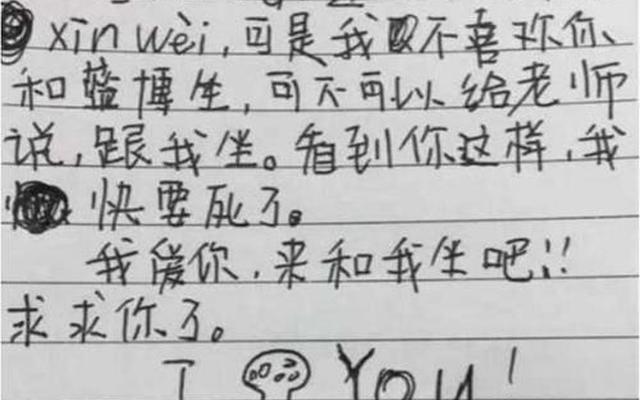 xīn wèi,可是我不喜欢你、
和蓝博生,可不可以给老师
说,跟我坐。看到你这样,我
快要死了。
我爱你,来和我坐吧!!
求求你了。
I You!